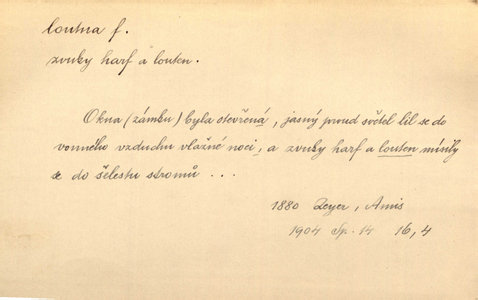 loutna f.
zvuky harf a louten.
Okna (zámku) byla otevřená, jasný proud světel lil se do
vonného vzduchu vlažné noci, a zvuky harf a louten mísily
se do šelestu stromů . . .
1880 Zeyer, Amis
1904 Sp. 14 16,4